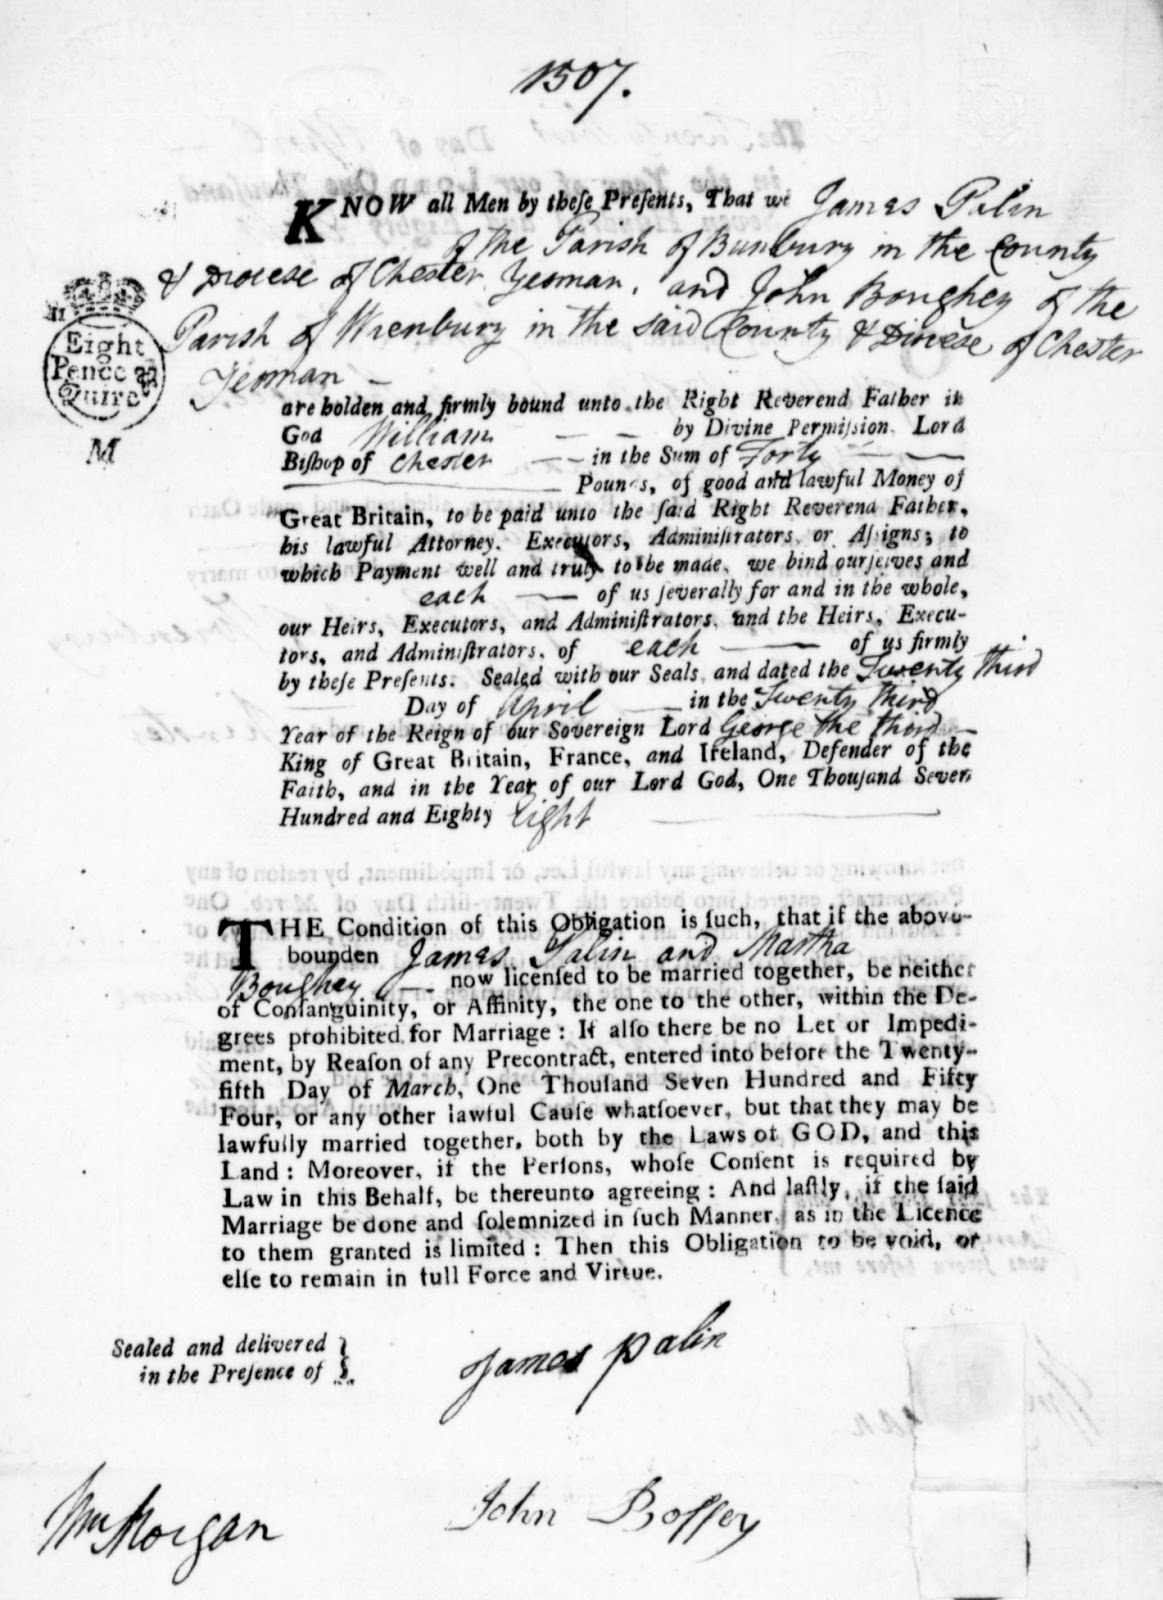 1507.
KNOW all Men by theſe Preſents, That we James Palin
of the Parish of Bunbury in the County
& Diocese of Chester Yeoman, and John Boughey of the
Parish of Wrenbury in the said County & Diocese of Chester
Yeoman –
Eight
Pence
Quire
M
are holden and firmly bound unto the Right Reverend Father in
God William – – by Divine Permiſſion, Lord
Biſhop of Chester – – in the Sum of Forty –
Pounds, of good and lawful Money of
Great Britain, to be paid unto the ſaid Right Reverend Father,
his lawful Attorney, Executors, Adminiſtrators or Aſſigns; to
which Payment well and truly to be made, we bind ourſelves and
each – of us ſeverally for and in the whole,
our Heirs, Executors, and Adminiſtrators, and the Heirs, Execu-
tors, and Adminiſtrators, of each – of us firmly
by theſe Preſents. Sealed with our Seals, and dated the Twenty third
Day of April – in the Twenty third
Year of the Reign of our Sovereign Lord George the third –
King of Great Britain, France, and Ireland, Defender of the
Faith, and in the Year of our Lord God, One Thouſand Seven
Hundred and Eighty Eight –
THE Condition of this Obligation is ſuch, that if the above-
bounden James Palin and Martha
Boughey – now licenſed to be married together, be neither
of Conſanguinity, or Affinity, the one to the other, within the De-
grees prohibited for Marriage: If alſo there be no Let or Impedi-
ment, by Reaſon of any Precontract, entered into before the Twenty-
fifth Day of March, One Thouſand Seven Hundred and Fifty
Four, or any other lawful Cauſe whatſoever, but that they may be
lawfully married together, both by the Laws of GOD, and this
Land: Moreover, if the Perſons, whoſe Conſent is required by
Law in this Behalf, be thereunto agreeing: And laſtly, if the ſaid
Marriage be done and ſolemnized in ſuch Manner, as in the Licence
to them granted is limited: Then this Obligation to be void, or
elſe to remain in full Force and Virtue.
Sealed and delivered
in the Preſence of
James Palin
Wm Morgan
John Boffey